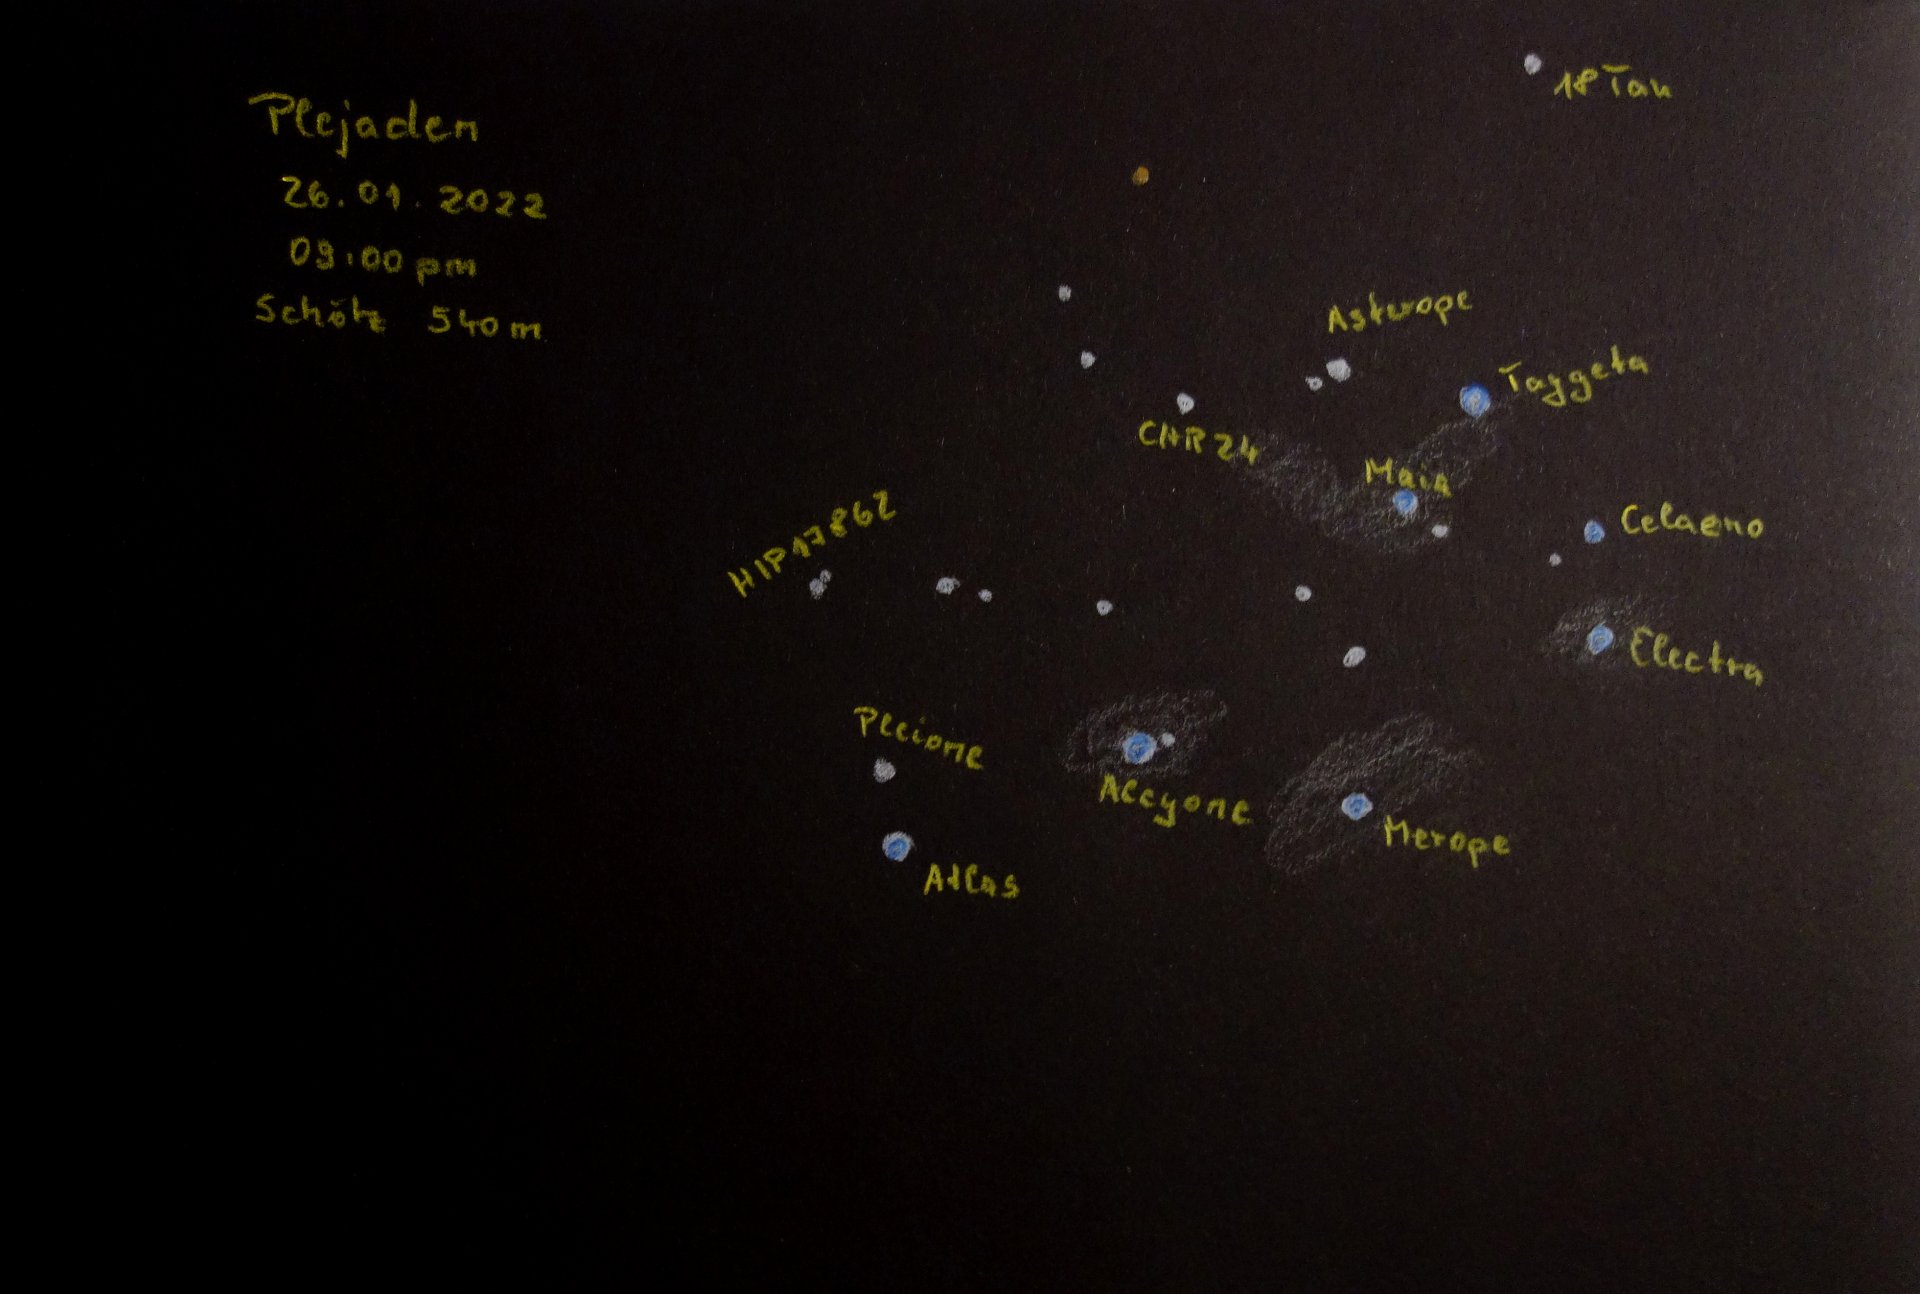 Plejaden
26.01.2022
09:00 pm
Schötz 540m
18 Tau
Asterope
Taygeta
CHR24
Maia
Celaeno
HIP17862
Electra
Pleione
Alcyone
Merope
Atlas